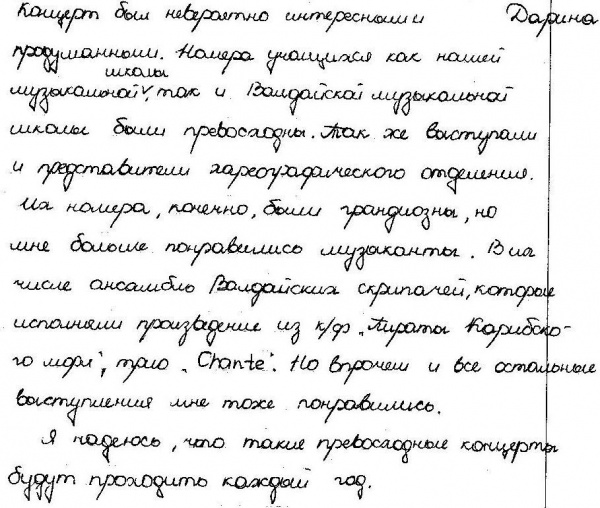 концерт был невероятно интересным и Дарина
продуманным. Номера учащихся как нашей
школы
музыкальной, так и Валдайской музыкальной
школы были превосходны. Так же выступали
и представители хареографического отделения.
Их номера, конечно, были грандиозны, но
мне больше понравились музыканты. В их
числе ансамбль Валдайских скрипачей, которые
исполняли произведение из к/ф „Пираты Карибско-
го моря", трио „Chante". Но впрочем и все остальные
выступления мне тоже понравились.
Я надеюсь, что такие превосходные концерты
будут проходить каждый год.